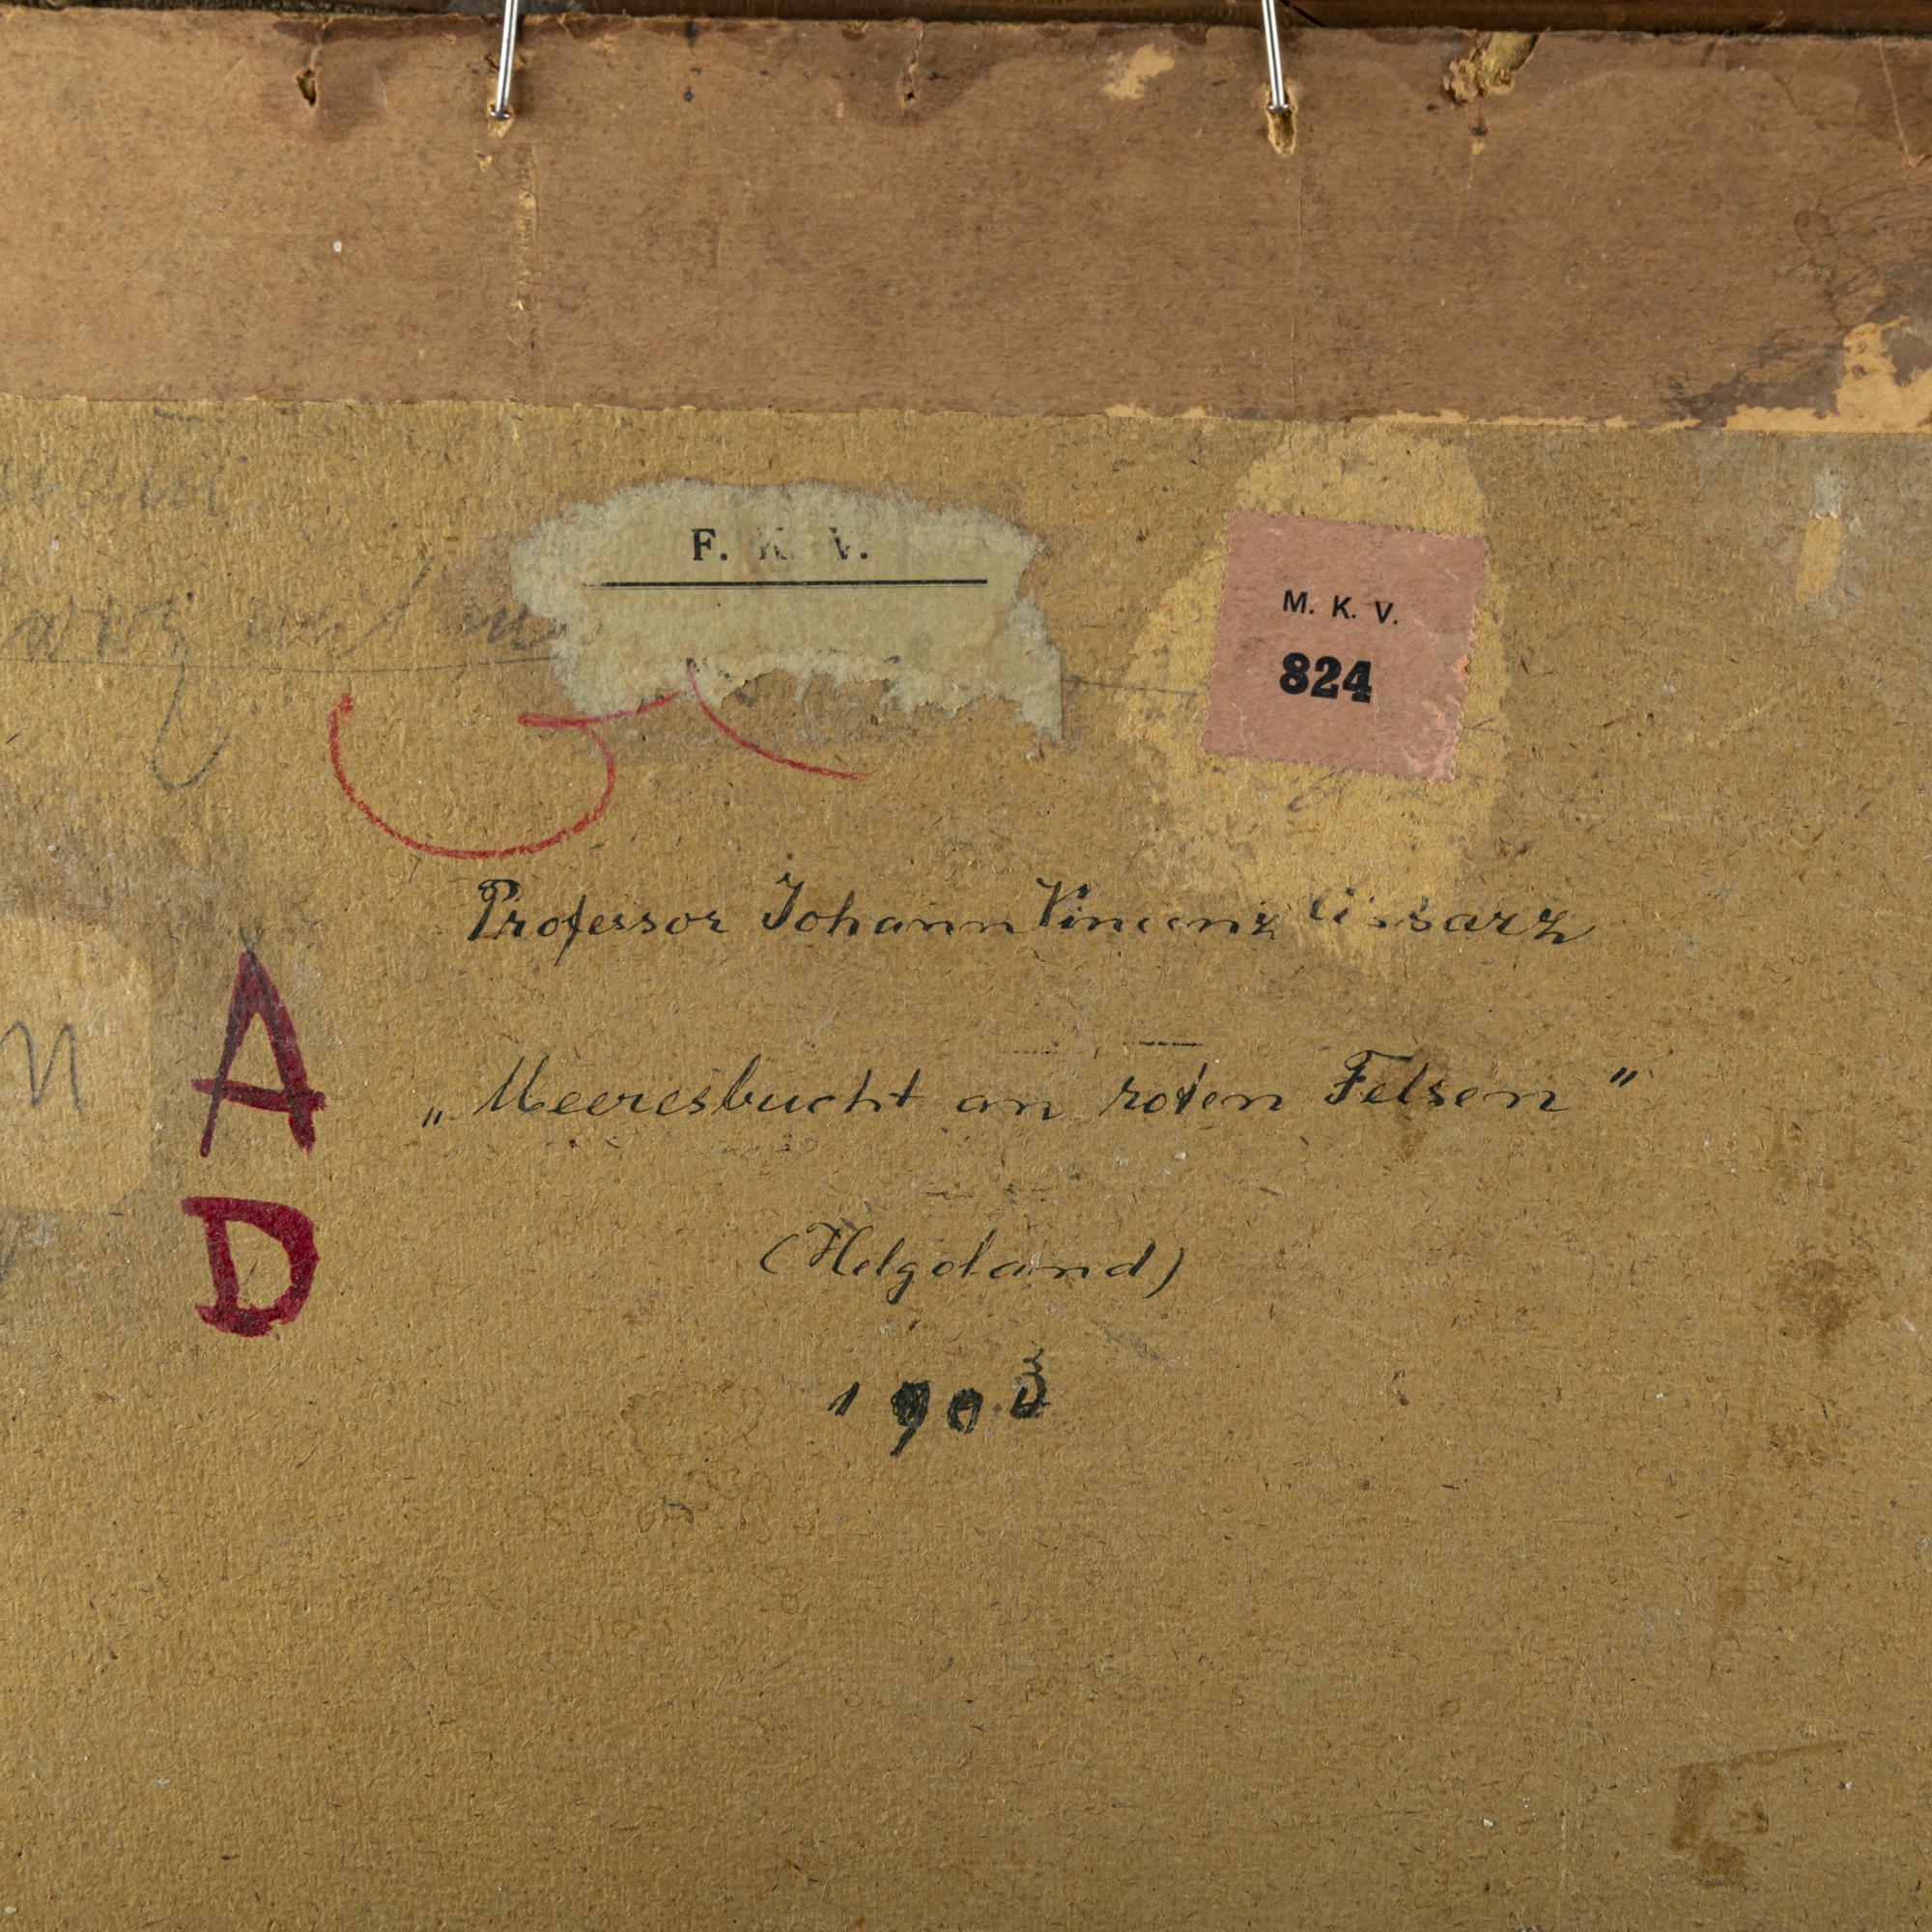 F. K. V.
M. K. V.
824
Professor Johann Vincenz Cissarz
A
„Meeresbucht an roten Felsen"
D
(Helgoland)
1903